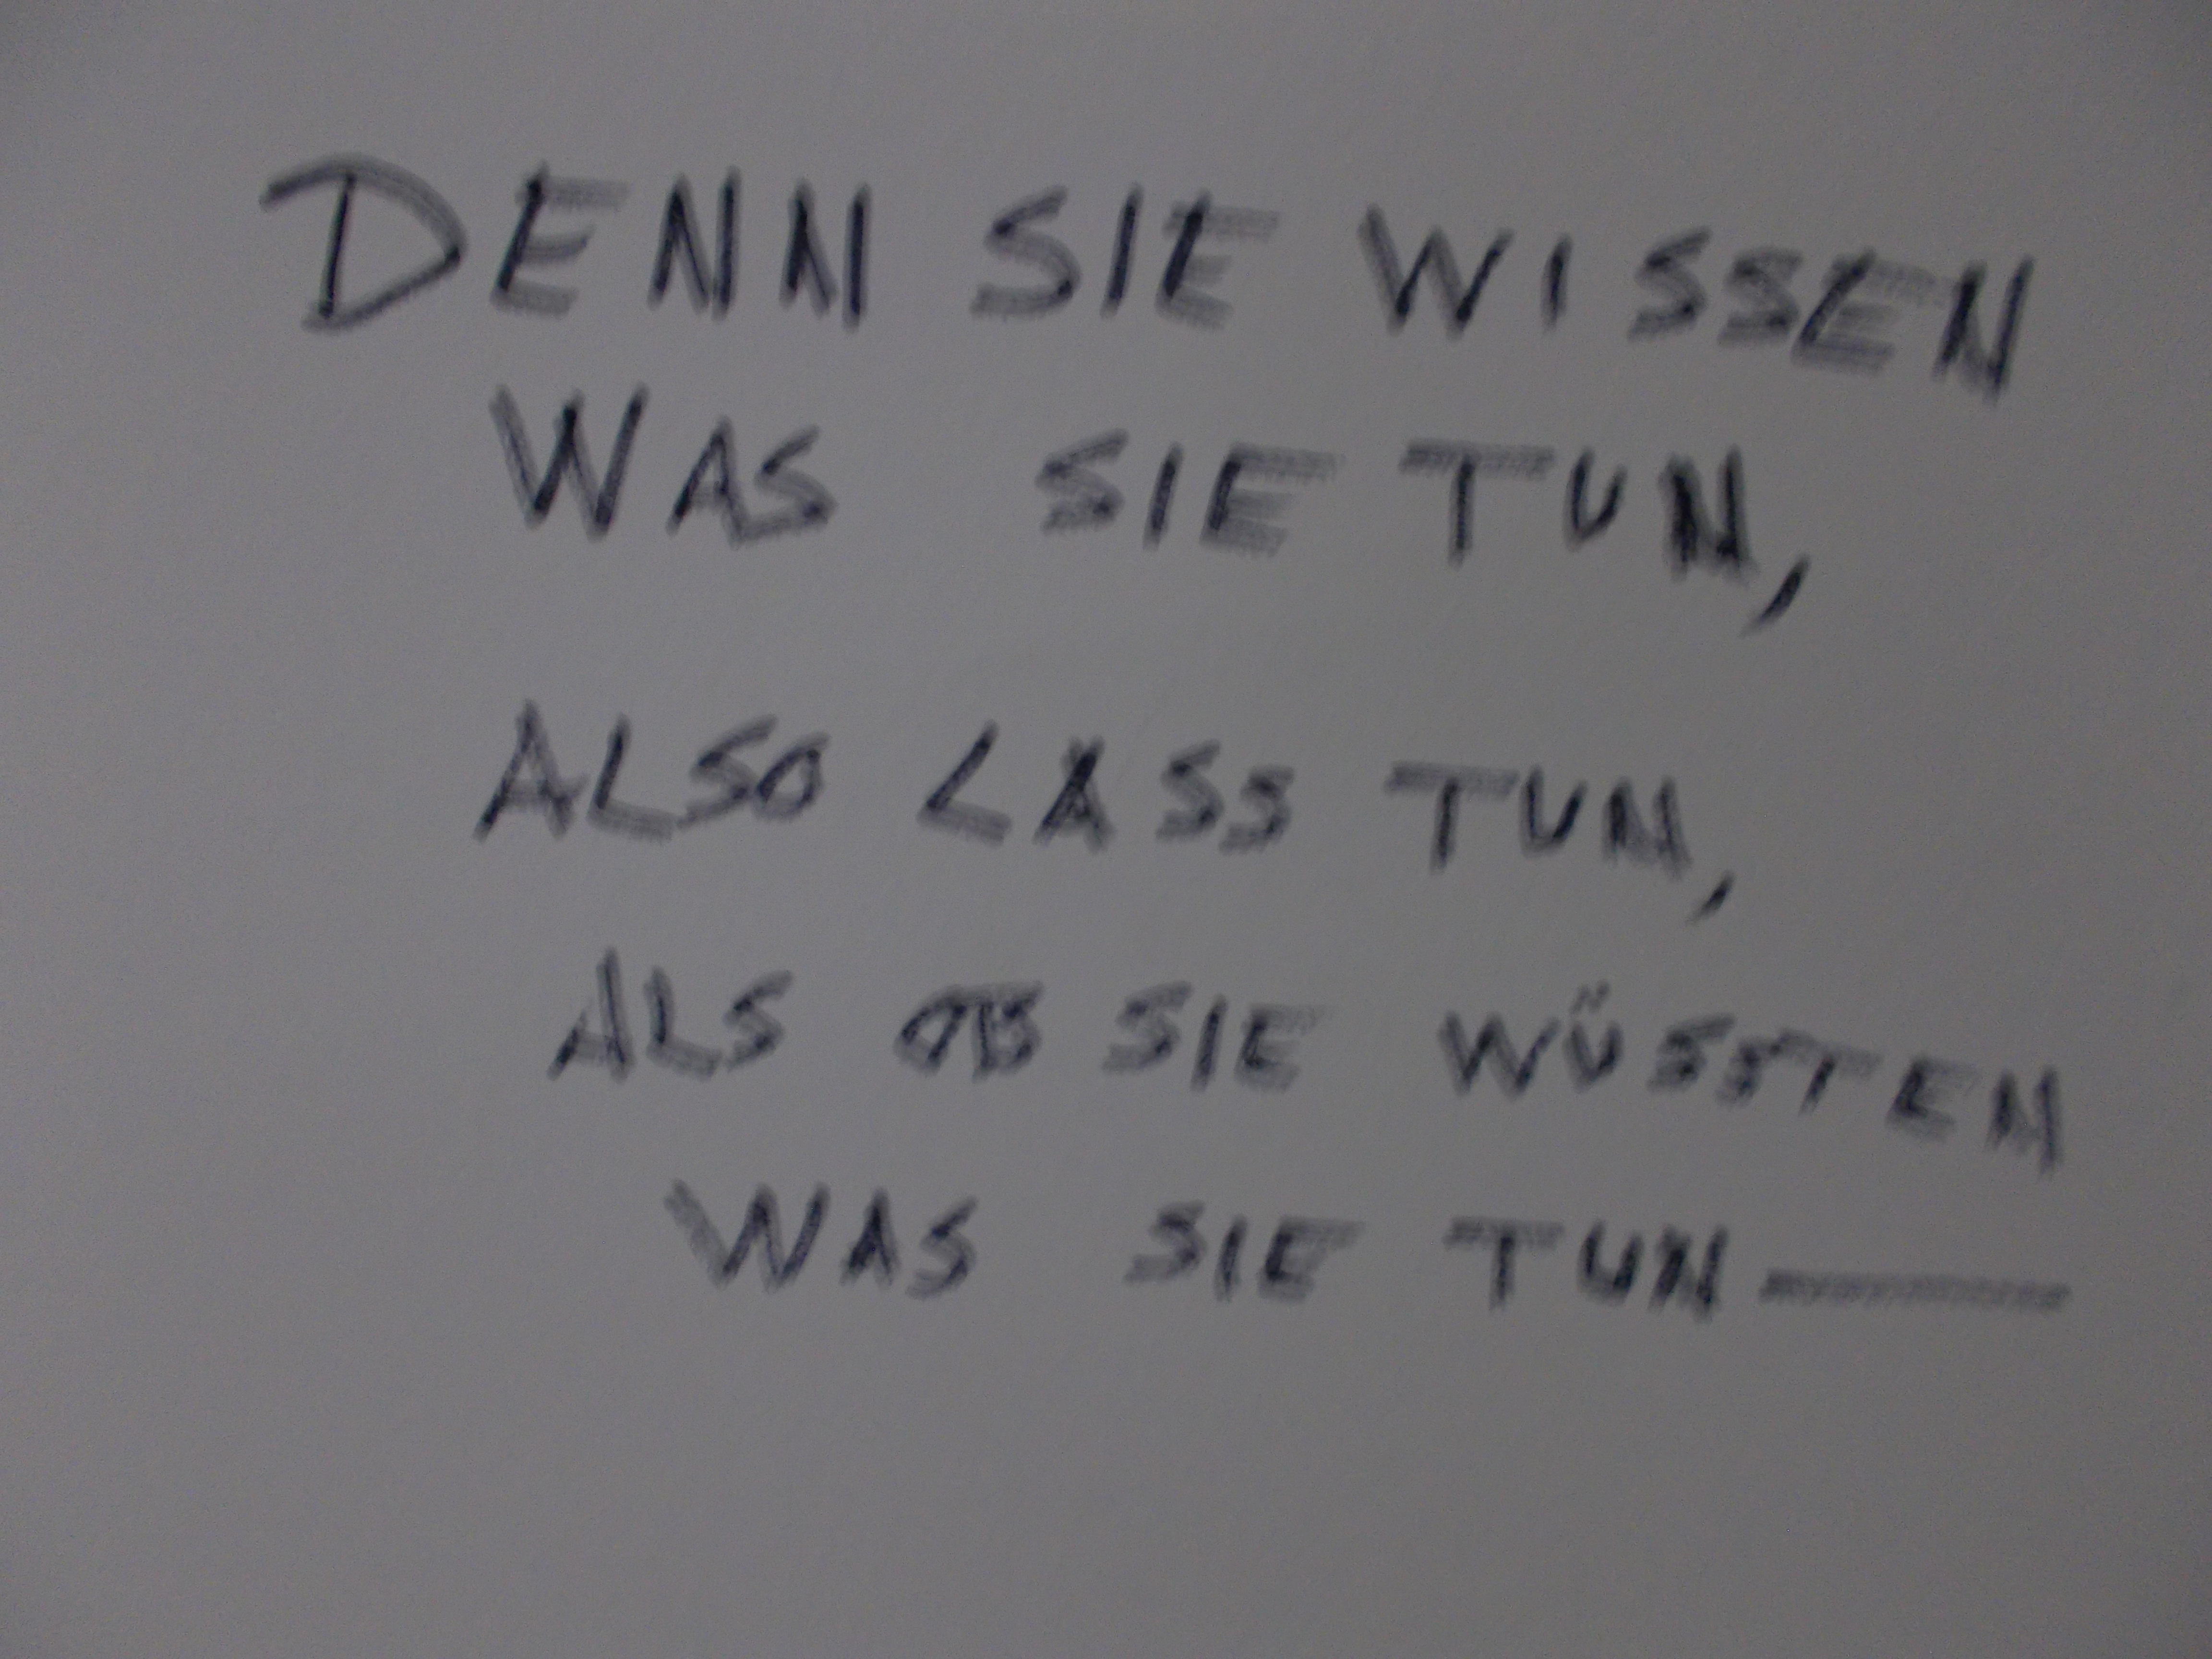 DENN SIE WISSEN
WAS SIE TUN,
ALSO LASS TUN,
ALS OB SIE WÜSSTEN
WAS SIE TUN—